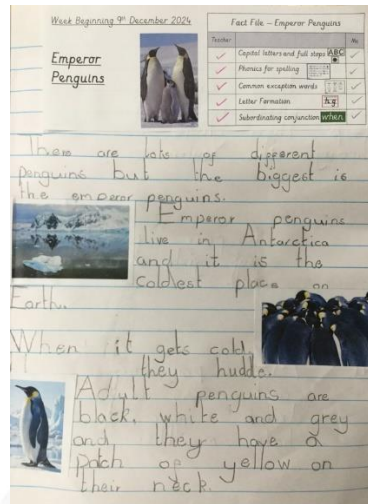 Week Beginning 9th December 2024
Emperor
Penguins
Fact File – Emperor Penguins
Teacher Me
Capital letters and full stops ABC
Phonics for spelling
Common exception words
Letter Formation
Subordinating conjunction when
There are lots of different
penguins but the biggest is
the emperor penguins.
Emperor penguins
live in Antarctica
and it is the
coldest place on
Earth.
When it gets cold
they hudde.
Adult penguins are
black, white and grey
and they have a
patch of yellow on
their neck.